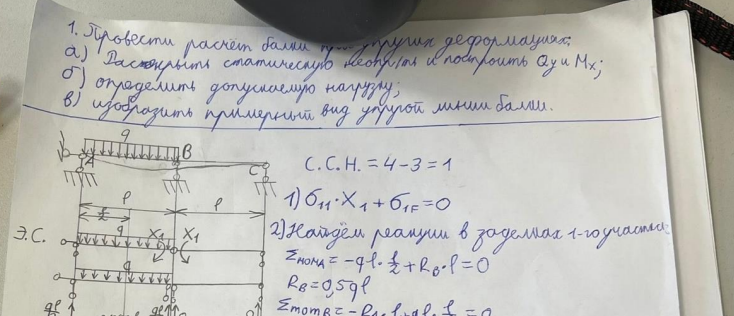 1. Провести расчёт балки упругих деформациях;
а) Раскрыть статическую неопр/ть и построить Qy и Mx;
б) определить допускаемую нагрузку;
в) изобразить примерный вид упругой линии балки.
q
A B C
С.С.Н. = 4-3=1
l l
l/2
1) б11·X1 + б1F = 0
Э.С. q X1 X1
2) Найдём реакции в заделках 1-го участка:
q
ΣмомA = -ql·l/2 + RB·l = 0
RB = 0,5ql
ql/2 ql/2
ΣmomB = -RA·l + ql·l/2 = 0